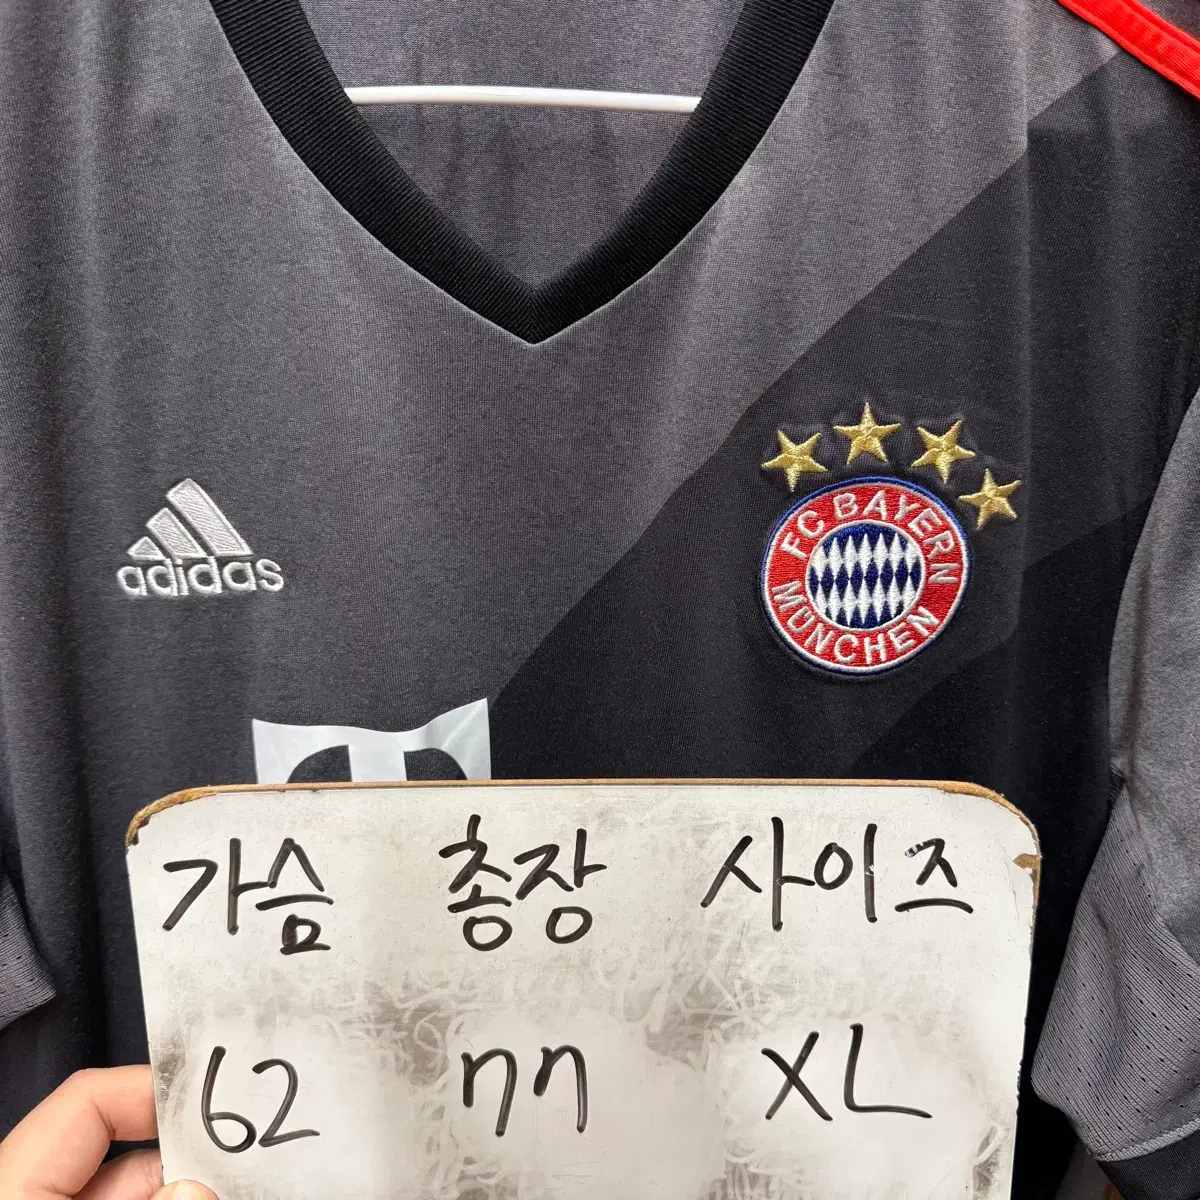 adidas
FC BAYERN
MÜNCHEN
T
가슴 총장 사이즈
62 77 XL